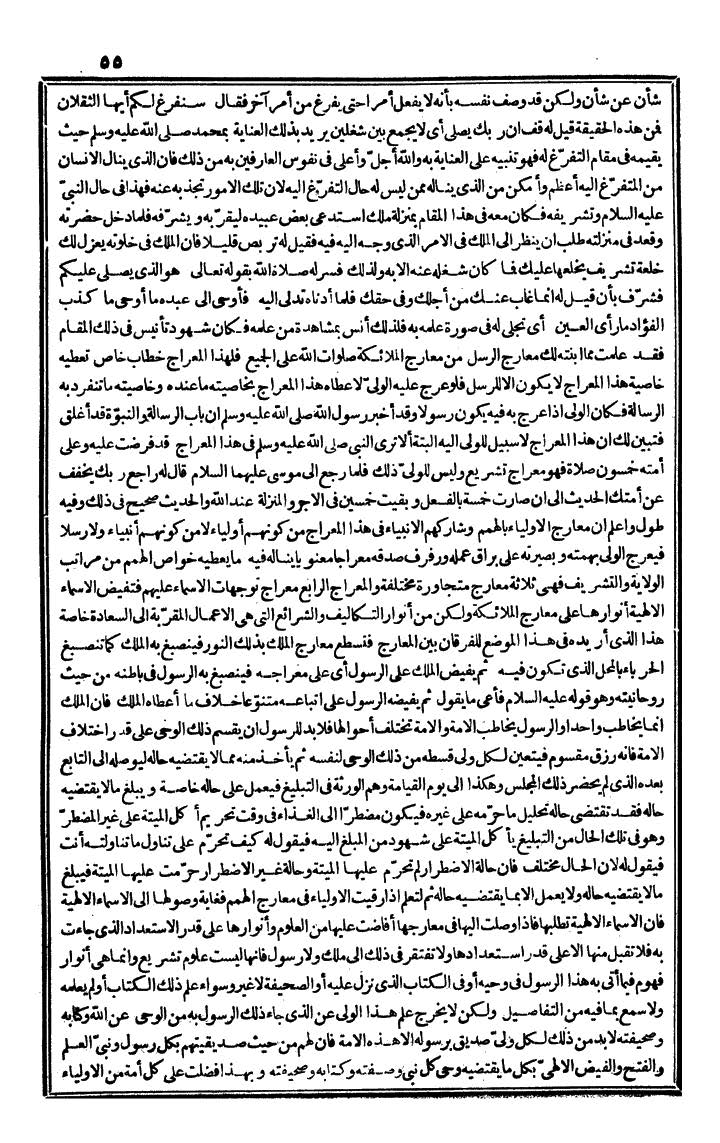 ٥٥
شأن عن شأن ولكن قد وصف نفسه بأنه لا يفعل أمرا حتى يفرغ من أمر آخر فقال سنفرغ لكم أيها الثقلان
فمن هذه الحقيقة قيل له قف ان ربك يصلى أى لا يجمع بين شغلين يريد بذلك العناية بمحمد صلى الله عليه وسلم حيث
يقيمه فى مقام التفرّغ له فهو تنبيه على العناية به والله أجلّ وأعلى فى نفوس العارفين به من ذلك فان الذى ينال الانسان
من المتفرّغ اليه أعظم وأمكن من الذى يناله ممن ليس له حال التفرّغ اليه لان تلك الامور تجذبه عنه فهذا فى حال النبىّ
عليه السلام وتشريفه فكان معه فى هذا المقام بمنزلة ملك استدعى بعض عبيده ليقرّبه ويشرّفه فلما دخل حضرته
وقعد فى منزلته طلب ان ينظر الى الملك فى الامر الذى وجه اليه فيه فقيل له تربص قليلا فان الملك فى خلوته يعزل لك
خلعة تشريف يخلعها عليك فما كان شغله عنه الا به ولذلك فسر له صلاة الله بقوله تعالى هو الذى يصلى عليكم
فشرّف بأن قيل له انما غاب عنك من أجلك وفى حقك فلما أدناه تدلى اليه فأوحى الى عبده ما أوحى ما كذب
الفؤاد ما رأى العين أى تجلى له فى صورة علمه به فلذلك أنس بمشاهدة من علمه فكان شهود تأنيس فى ذلك المقام
فقد علمت مما ابنته لك معارج الرسل من معارج الملائكة صلوات الله على الجميع فلهذا المعراج خطاب خاص تعطيه
خاصية هذا المعراج لا يكون الا للرسل فلو عرج عليه الولىّ لاعطاه هذا المعراج بخاصيته ما عنده وخاصيته ما تنفرد به
الرسالة فكان الولى اذا عرج به فيه يكون رسولا وقد أخبر رسول الله صلى الله عليه وسلم ان باب الرسالة والنبوّة قد أغلق
فتبين لك ان هذا المعراج لا سبيل للولى اليه البتة ألا ترى النبى صلى الله عليه وسلم فى هذا المعراج قد فرضت عليه وعلى
أمته خمسون صلاة فهو معراج تشريع وليس للولىّ ذلك فلما رجع الى موسى عليهما السلام قال له راجع ربك يخفف
عن أمتك الحديث الى ان صارت خمسة بالفعل وبقيت خمسين فى الاجر والمنزلة عند الله والحديث صحيح فى ذلك وفيه
طول واعلم ان معارج الاولياء بالهمم وشاركهم الانبياء فى هذا المعراج من كونهم أولياء لا من كونهم أنبياء ولا رسلا
فيعرج الولى بهمته وبصيرته على براق عمله ورفرف صدقه معراجا معنويا يناله فيه ما يعطيه خواص الهمم من مراتب
الولاية والتشريف فهى ثلاثة معارج متجاورة مختلفة والمعراج الرابع معراج توجهات الاسماء عليهم فتفيض الاسماء
الالهية أنوارها على معارج الملائكة ولكن من أنوار التكاليف والشرائع التى هى الاعمال المقرّبة الى السعادة خاصة
هذا الذى أريده فى هذا الموضع للفرقان بين المعارج فتسطع معارج الملك بذلك النور فينصبغ به الملك كما تنصبغ
الحرباء بالمحل الذى تكون فيه ثم يفيض الملك على الرسول أى على معراجه فينصبغ به الرسول فى باطنه من حيث
روحانيته وهو قوله عليه السلام فأعى ما يقول ثم يفيضه الرسول على اتباعه متنوّعا خلاف ما أعطاه الملك فان الملك
انما يخاطب واحدا والرسول يخاطب الامة والامة تختلف أحوالها فلا بد للرسول ان يقسم ذلك الوحى على قدر اختلاف
الامة فانه رزق مقسوم فيتعين لكل ولى قسطه من ذلك الوحى لنفسه ثم يأخذ منه مما لا يقتضيه حاله ليوصله الى التابع
بعده الذى لم يحضر ذلك المجلس وهكذا الى يوم القيامة وهم الورثة فى التبليغ فيعمل على حاله خاصة ويبلغ ما لا يقتضيه
حاله فقد تقتضى حاله تحليل ما حرّمه على غيره فيكون مضطرّا الى الغذاء فى وقت تحريم أكل الميتة على غير المضطرّ
وهو فى تلك الحال من التبليغ يأكل الميتة على شهود من المبلغ اليه فيقول له كيف تحرّم على تناول ما تناولته أنت
فيقول له لان الحال مختلف فان حالة الاضطرار لم تحرّم عليها الميتة وحالة غير الاضطرار حرّمت عليها الميتة فيبلغ
ما لا يقتضيه حاله ولا يعمل الا بما يقتضيه حاله ثم لتعلم اذا رقيت الاولياء فى معارج الهمم فغاية وصولها الى الاسماء الالهية
فان الاسماء الالهية تطلبها فاذا وصلت اليها فى معارجها أفاضت عليها من العلوم وأنوارها على قدر الاستعداد الذى جاءت
به فلا تقبل منها الا على قدر استعدادها ولا تفتقر فى ذلك الى ملك ولا رسول فانها ليست علوم تشريع وانما هى أنوار
فهوم فيما أتى به هذا الرسول فى وحيه أو فى الكتاب الذى نزل عليه أو الصحيفة لا غير وسواء علم ذلك الكتاب أو لم يعلمه
ولا سمع بما فيه من التفاصيل ولكن لا يخرج علم هذا الولى عن الذى جاء ذلك الرسول به من الوحى عن الله وكتابه
وصحيفته لا بد من ذلك لكل ولىّ صديق برسوله الا هذه الامة فان لهم من حيث صديقيتهم بكل رسول ونبىّ العلم
والفتح والفيض الالهىّ بكل ما يقتضيه وحى كل نبى وصفته وكتابه وصحيفته وبهذا فضلت على كل أمة من الاولياء